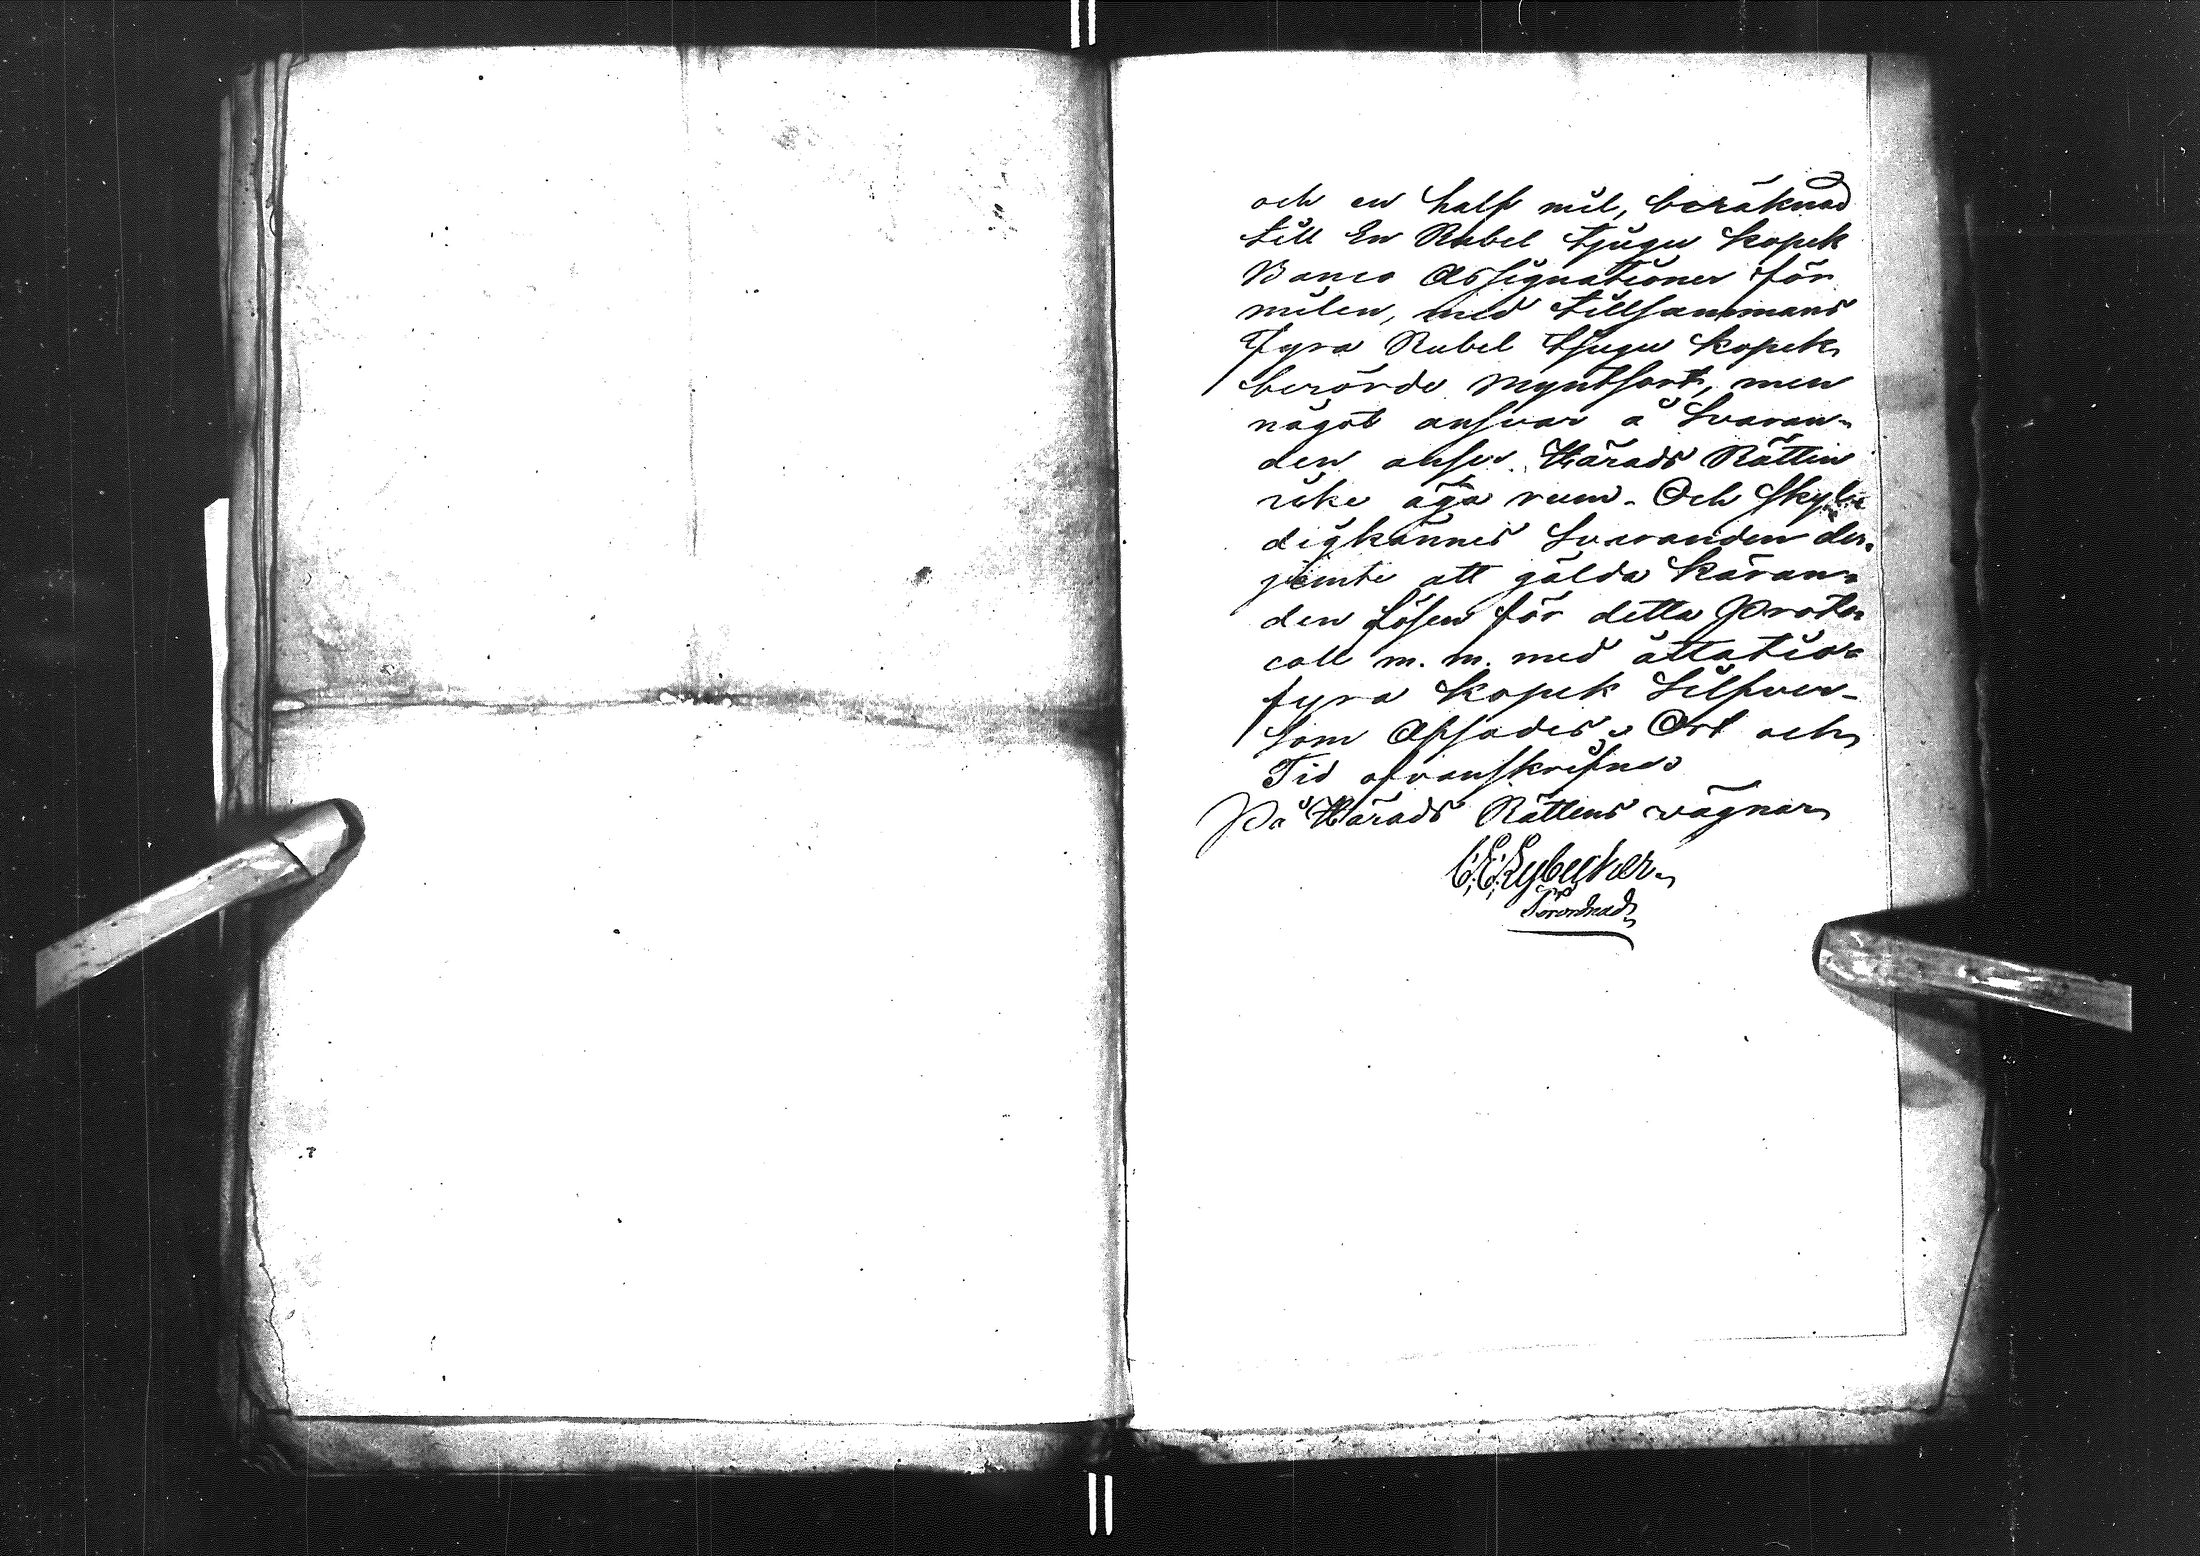 och en half mil, beräknad
till En Rubel tjugu kopek
Banco Assignationer för
milen, med tillsammans
Fyra Rubel tjugu kopek
berörde myntsort, men
något ansvar å Svaran-
den anser Härads Rätten
icke äga rum. Och skyl-
digkännes Svaranden der-
jemte att gälda Käran-
den lösen för detta Proto-
coll m. m. med åttatio-
fyra kopek Silfver-
som Afsades, Ort och
Tid ofvanskrifne
På Härads Rättens vägnar
C. E. Lybecker
Förordnad